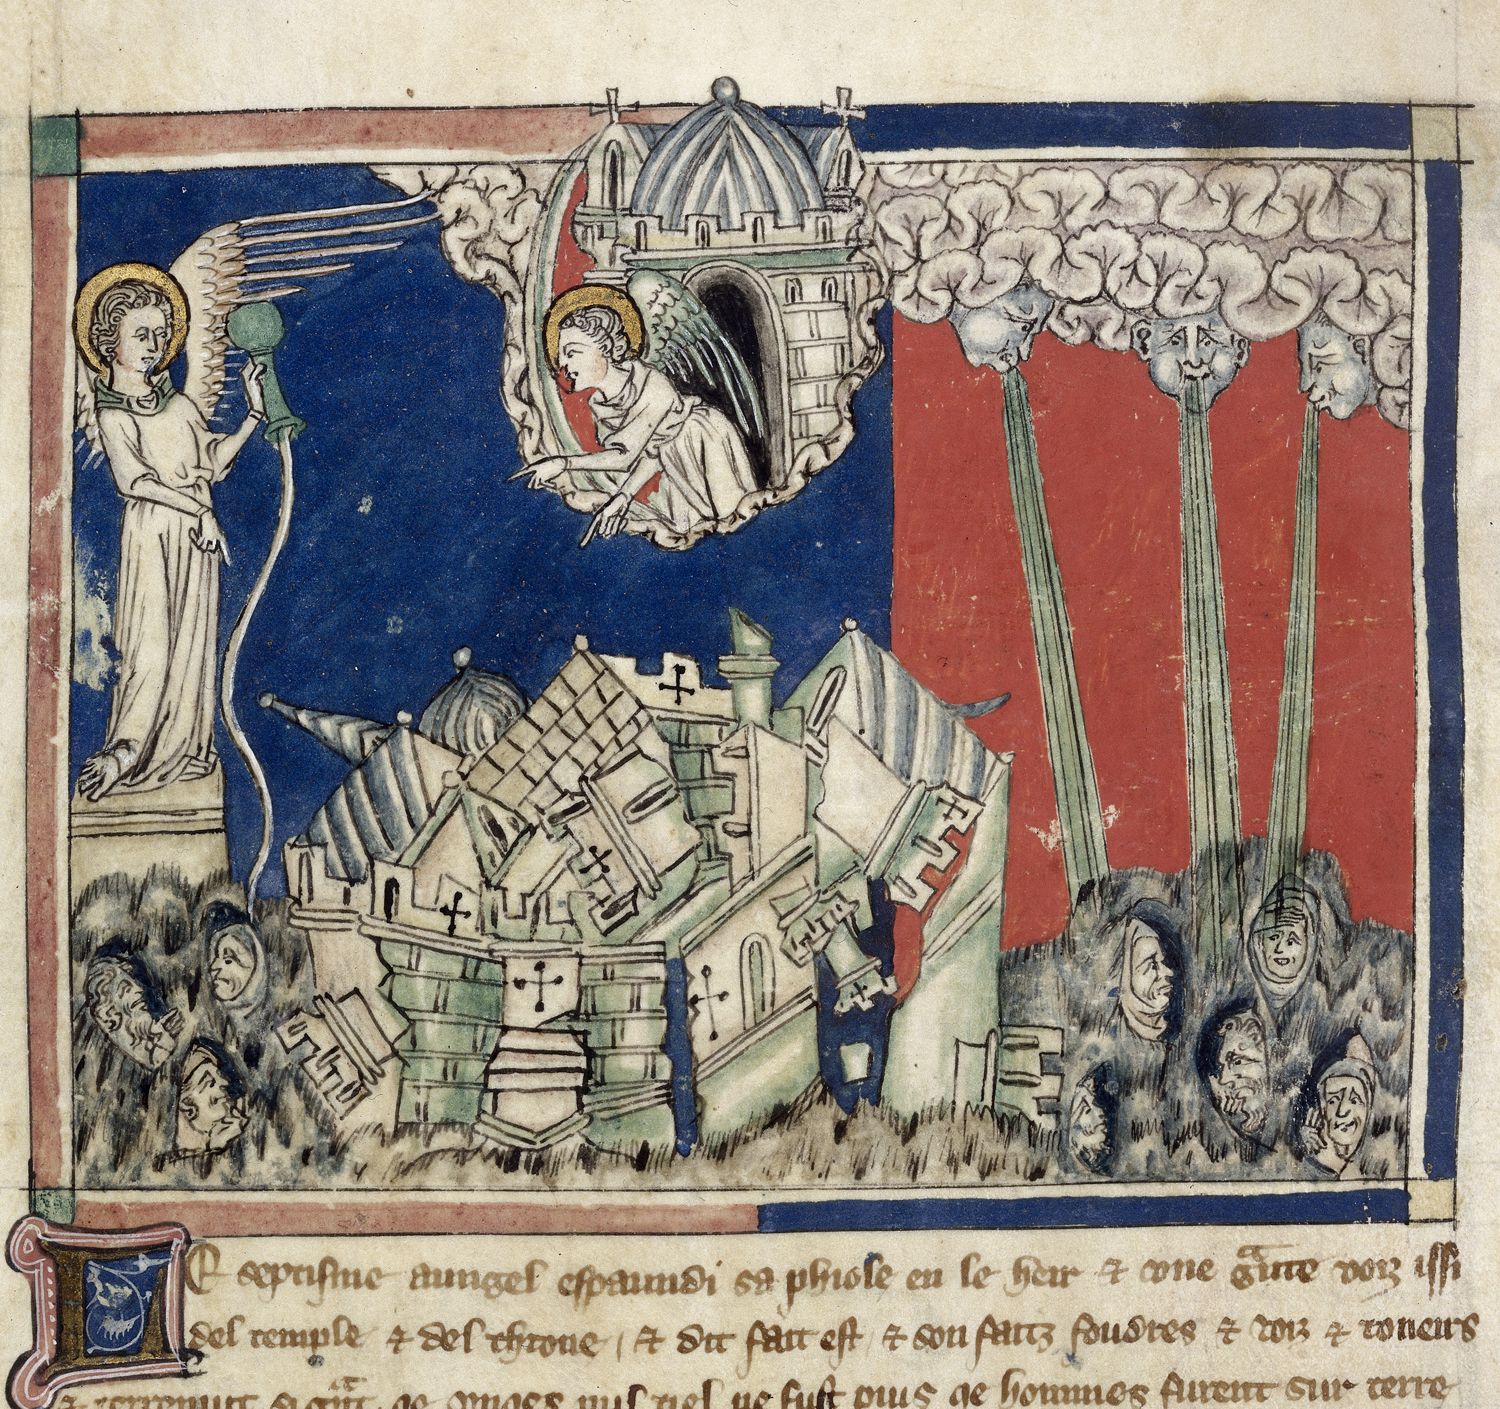 LE septisme aungel espaundi sa phiole en le heir & vne gante voiz issi
del temple & del throne, & dit fait est, & don faitz foudres & voiz & toneirs
& terremut si gant, qe vnqes nul tiel ne fust puis qe hommes furent sur terre